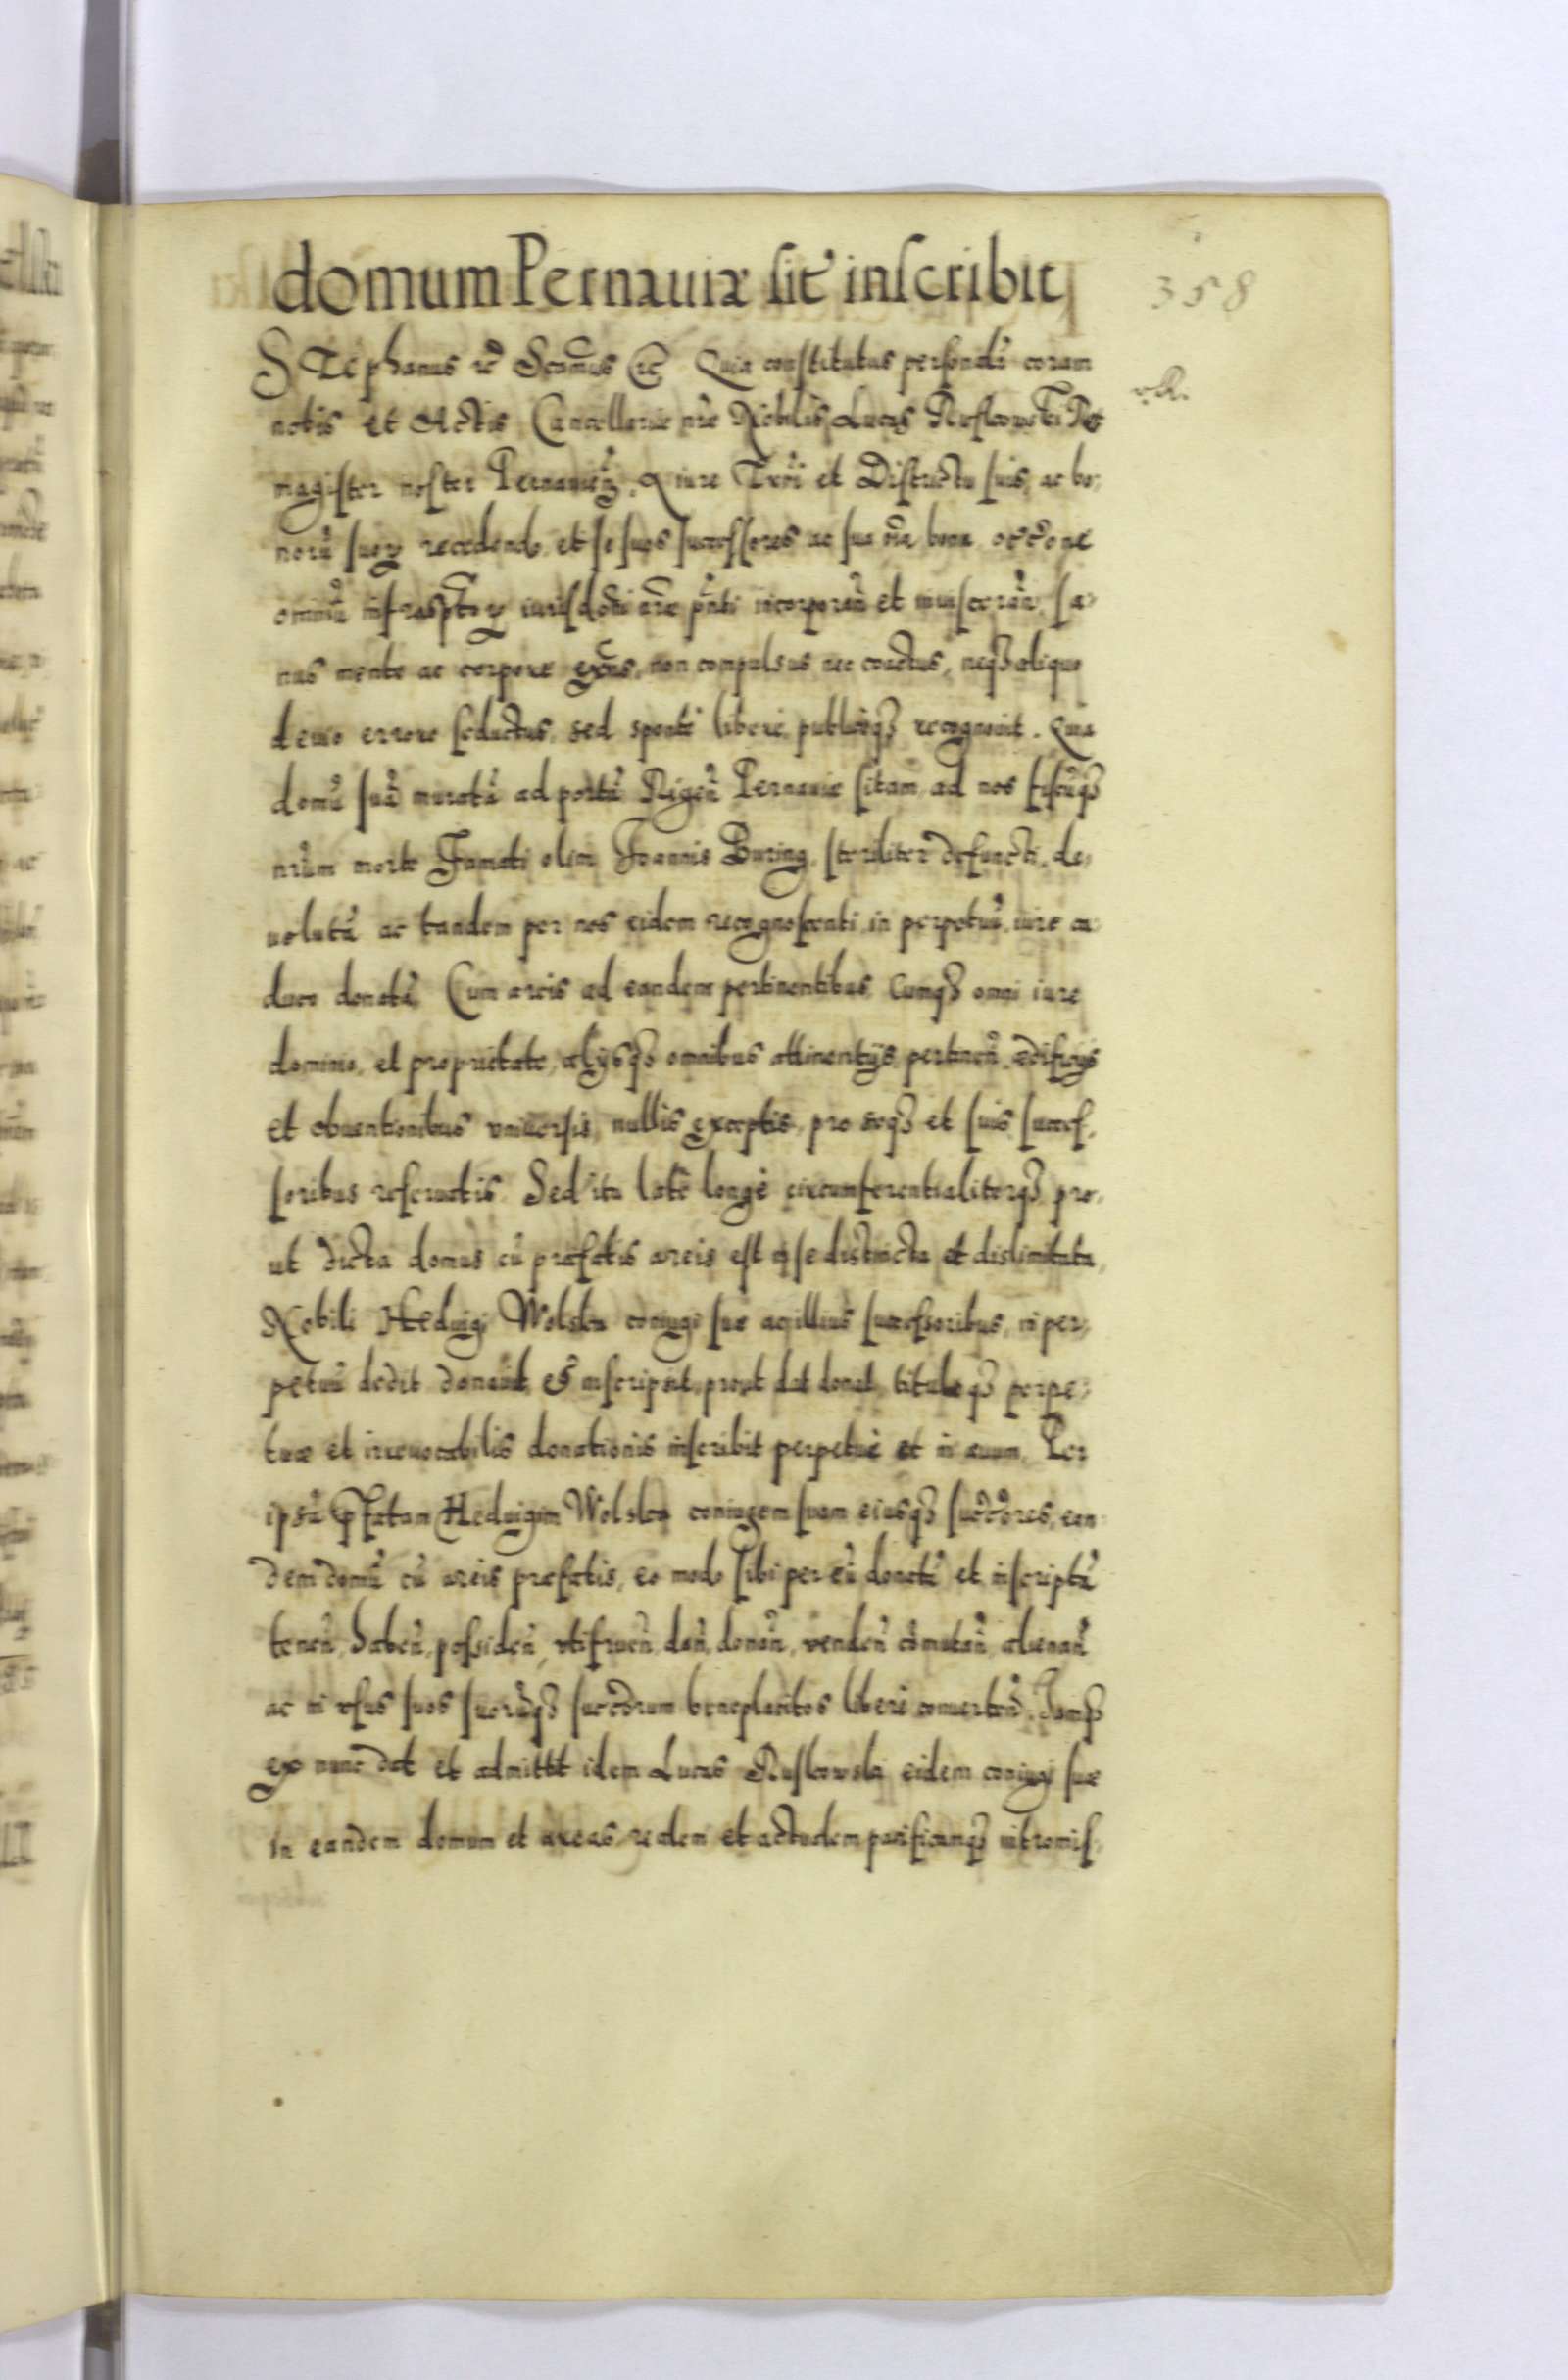 domum Pernauiæ sit' inscribit
358
STephanus rc̃ Scamus rc̃ Quia constitutus personalr̃ coram
r. R.
nobis et Actis Cancellariæ nr̃æ Nobilis Lucas Ruskowski
magister noster Pernauien̄, A iure Trr̃i et Districtu suis, ac bo-
norũ suoꝝ recedendo, et se suos successores ac sua oĩa bona
omniũ infrasptoꝝ nr̃æ pñti incorporañ et inuiscerañ, sa-
nus mente ac corpore ex̃ns, non compulsus nec coactus, neqꝫ aliquo
deuio errore seductus, sed sponte libere, publiceqꝫ recognouit. Quia
domũ suã muratã ad portã Rigeñ Pernauiæ sitam, ad nos fiscũqꝫ
nrũm morte Famati olim Joannis Buring, steriliter defuncti, de-
uolutã ac tandem per nos eidem recognoscenti in perpetuũ, iure ca-
duco donatã Cum areis ad eandem pertinentibus, cumqꝫ omni iure
dominio, et proprietate, alijsqꝫ omnibus attinentijs, pertineñ ædificijs
et obuentionibus vniuersis, nullis exceptis, pro seqꝫ et suis succes-
soribus reseruatis Sed ita late longe circumferentialiterqꝫ pro-
ut dicta domus cũ præfatis areis est in se distincta et dislimitata,
Nobili Heduigi Wolska coniugi suæ ac illius successoribus, in per-
petuũ dedit donauit, et inscripsit, prout dat donat, tituloqꝫ perpe-
tuæ et irreuocabilis donationis inscribit perpetue et in æuum. Per
ipsã præfatam Heduigim Wolska coniugem suam eiusqꝫ succ̃res, ean-
dem domũ cũ areis præfatis, eo modo sibi per eũ donatã et inscriptã
teneñ, habeñ, possideñ, vtifrueñ, dañ, donañ, vendeñ cõmutañ, alienañ
ac in vsus suos suorũqꝫ succ̃orum beneplacitos libere conuerteñ.
ex nunc dat et admittit idem Lucas Ruskowski eidem coniugi suæ
in eandem domum et areas realem et actualem pacificamqꝫ intromis-